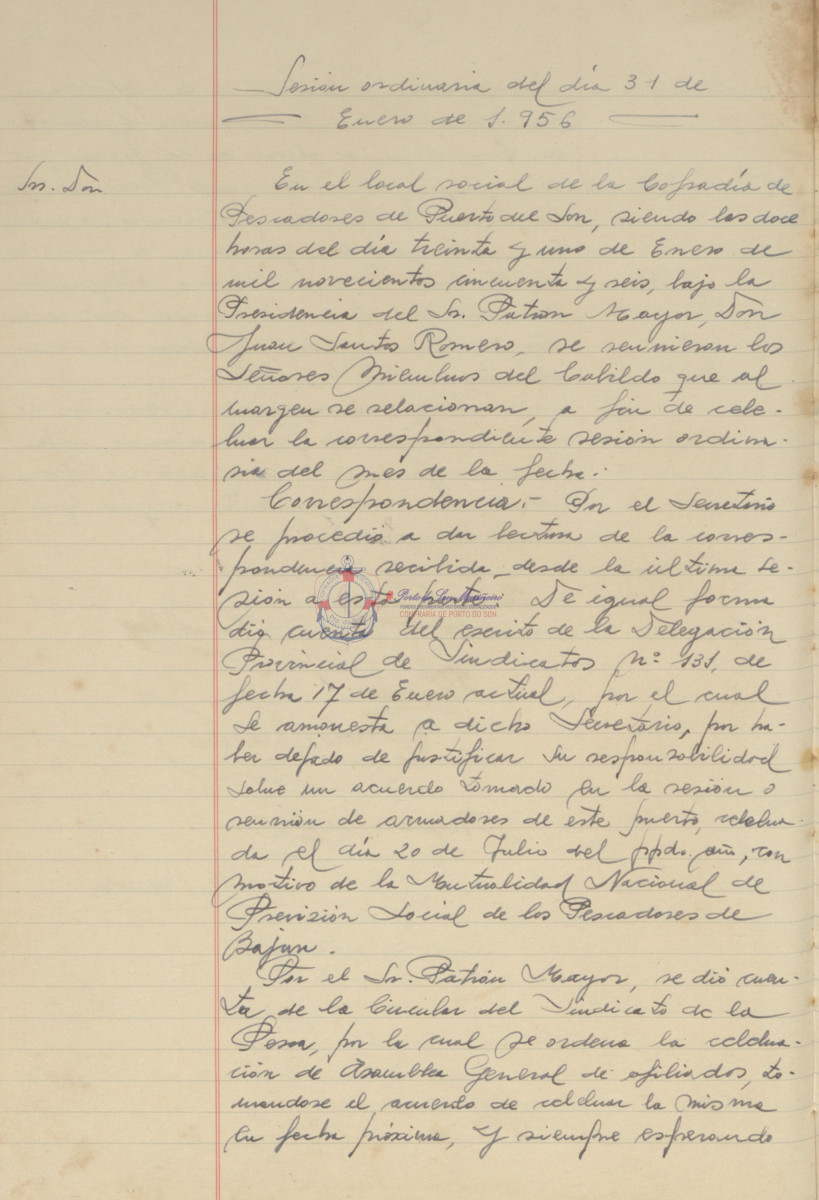 Sesión ordinaria del día 31 de
Enero de 1.956
Srs. Don
En el local social de la Cofradía de
Pescadores de Puerto del Son, siendo las doce
horas del día treinta y uno de Enero de
mil novecientos cincuenta y seis, bajo la
Presidencia del Sr. Patrón Mayor, Don
Juan Santos Romero, se reunieron los
Señores Miembros del Cabildo que al
margen se relacionan, a fin de cele-
brar la correspondiente sesión ordina-
ria del mes de la fecha.
Correspondencia.- Por el Secretario
se procedió a dar lectura de la corres-
pondencia recibida, desde la última se-
sión a esta fecha. De igual forma
dió cuenta del escrito de la Delegación
Provincial de Sindicatos nº 131, de
fecha 17 de Enero actual, por el cual
se amonesta a dicho Secretario, por ha-
ber dejado de justificar su responsabilidad
sobre un acuerdo tomado en la sesión o
reunión de armadores de este puerto, celebra-
da el día 20 de Julio del ppdo. año, con
motivo de la Mutualidad Nacional de
Previsión Social de los Pescadores de
Bajura.
Por el Sr. Patrón Mayor, se dió cuen-
ta, de la Circular del Sindicato de la
Pesca, por la cual se ordena la celebra-
ción de Asamblea General de afiliados, to-
mandose el acuerdo de celebrar la misma
en fecha próxima, y siempre esperando
CONFRARIA DE PORTO DO SON